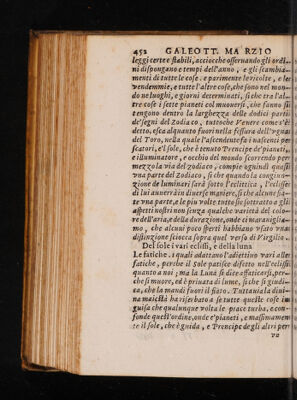 452 GALEOTT. MARZIO
leggi certe e stabili, acciocche osseruando gli ordi-
ni dispongano e tempi dell'anno, e gli scambia-
menti di tutte le cose. e parimente le ricolte, e le
vendemmie, e tutte l'altre cose, che sono nel mon-
do ne luoghi, e giorni determinati, si che tra l'al-
tre cose i sette pianeti col muouersi, che fanno si
tengono dentro la larghezza delle dodici parti
de'segni del Zodiaco, tuttoche Venere come s'è
detto, esca alquanto fuori nella fessura dell'vgna
del Toro, nella quale l'ascendente fa i nascenti pe-
scatori, e'l sole, che è tenuto Prencipe de'pianeti,
e illuminatore, e occhio del mondo scorrendo per
mezzo la via del zodiaco, compie ogni dì quasi
vna parte del Zodiaco, si che quando la congiun-
zione de luminari sarà sotto l'eclittica, l'eclissi
di lui auuerrà in diuerse maniere, si che alcune fia-
te vna parte, e le piu volte tutto sia sottratto a gli
aspetti nostri non senza qualche varietà del colo-
re dell'aria, e della durazione, onde ci marauiglia-
mo, che alcuni poco sperti habbiano vsato vna
distinzione sciocca sopra quel verso di Virgilio.
Del sole i vari eclissi, e della luna
Le fatiche. i quali adattano l'adiettiuo vari alle
fatiche, perche il sole patisce difetto nell'eclissi
quanto a noi; ma la Luna si dice affaticarsi, per-
che si muore, ed è priuata di lume, si che si giudi-
ca, che la mandi fuori il fiato. Tuttauia la diui-
na maiestà ha riserbato a se tutte quelle cose in
guisa che qualunque volta le piace turba, e con-
fonde quell'ordine, onde e'pianeti, e massimamen
te il sole, che è guida, e Prencipe de gli altri per